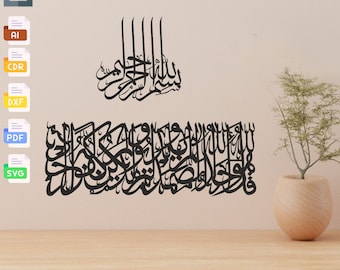 AI
CDR
DXF
PDF
SVG
بسم الله الرحمن الرحيم
قل هو الله أحد الله الصمد لم يلد ولم يولد ولم يكن له كفوا أحد